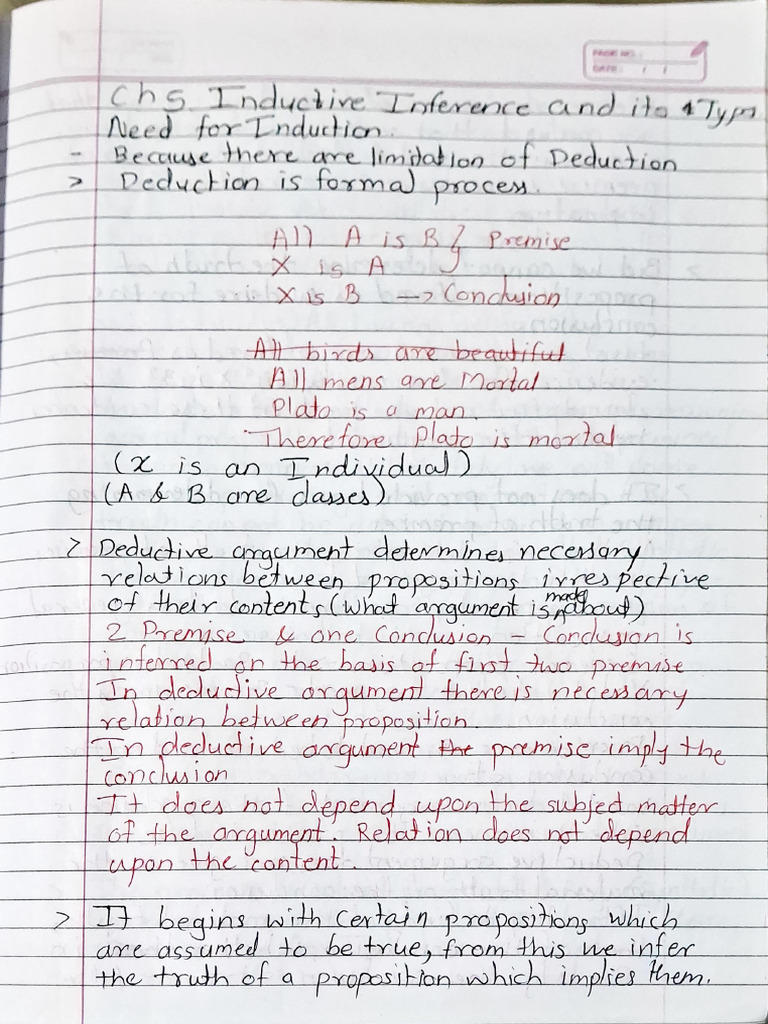 PAGE NO.:
DATE: / /
Ch 5 Inductive Inference and its Types
Need for Induction.
- Because there are limitation of Deduction
> Deduction is formal process.
All A is B } Premise
X is A
X is B —> Conclusion
All birds are beautiful
All mens are Mortal
Plato is a man.
Therefore Plato is mortal
(X is an Individual)
(A & B are classes)
> Deductive argument determines necessary
relations between propositions irrespective
of their contents (what argument is made about)
2 Premise & one Conclusion - Conclusion is
inferred on the basis of first two premise
In deductive argument there is necessary
relation between proposition.
In deductive argument the premise imply the
conclusion
It does not depend upon the subject matter
of the argument. Relation does not depend
upon the content.
> It begins with certain propositions which
are assumed to be true, from this we infer
the truth of a proposition which implies them.